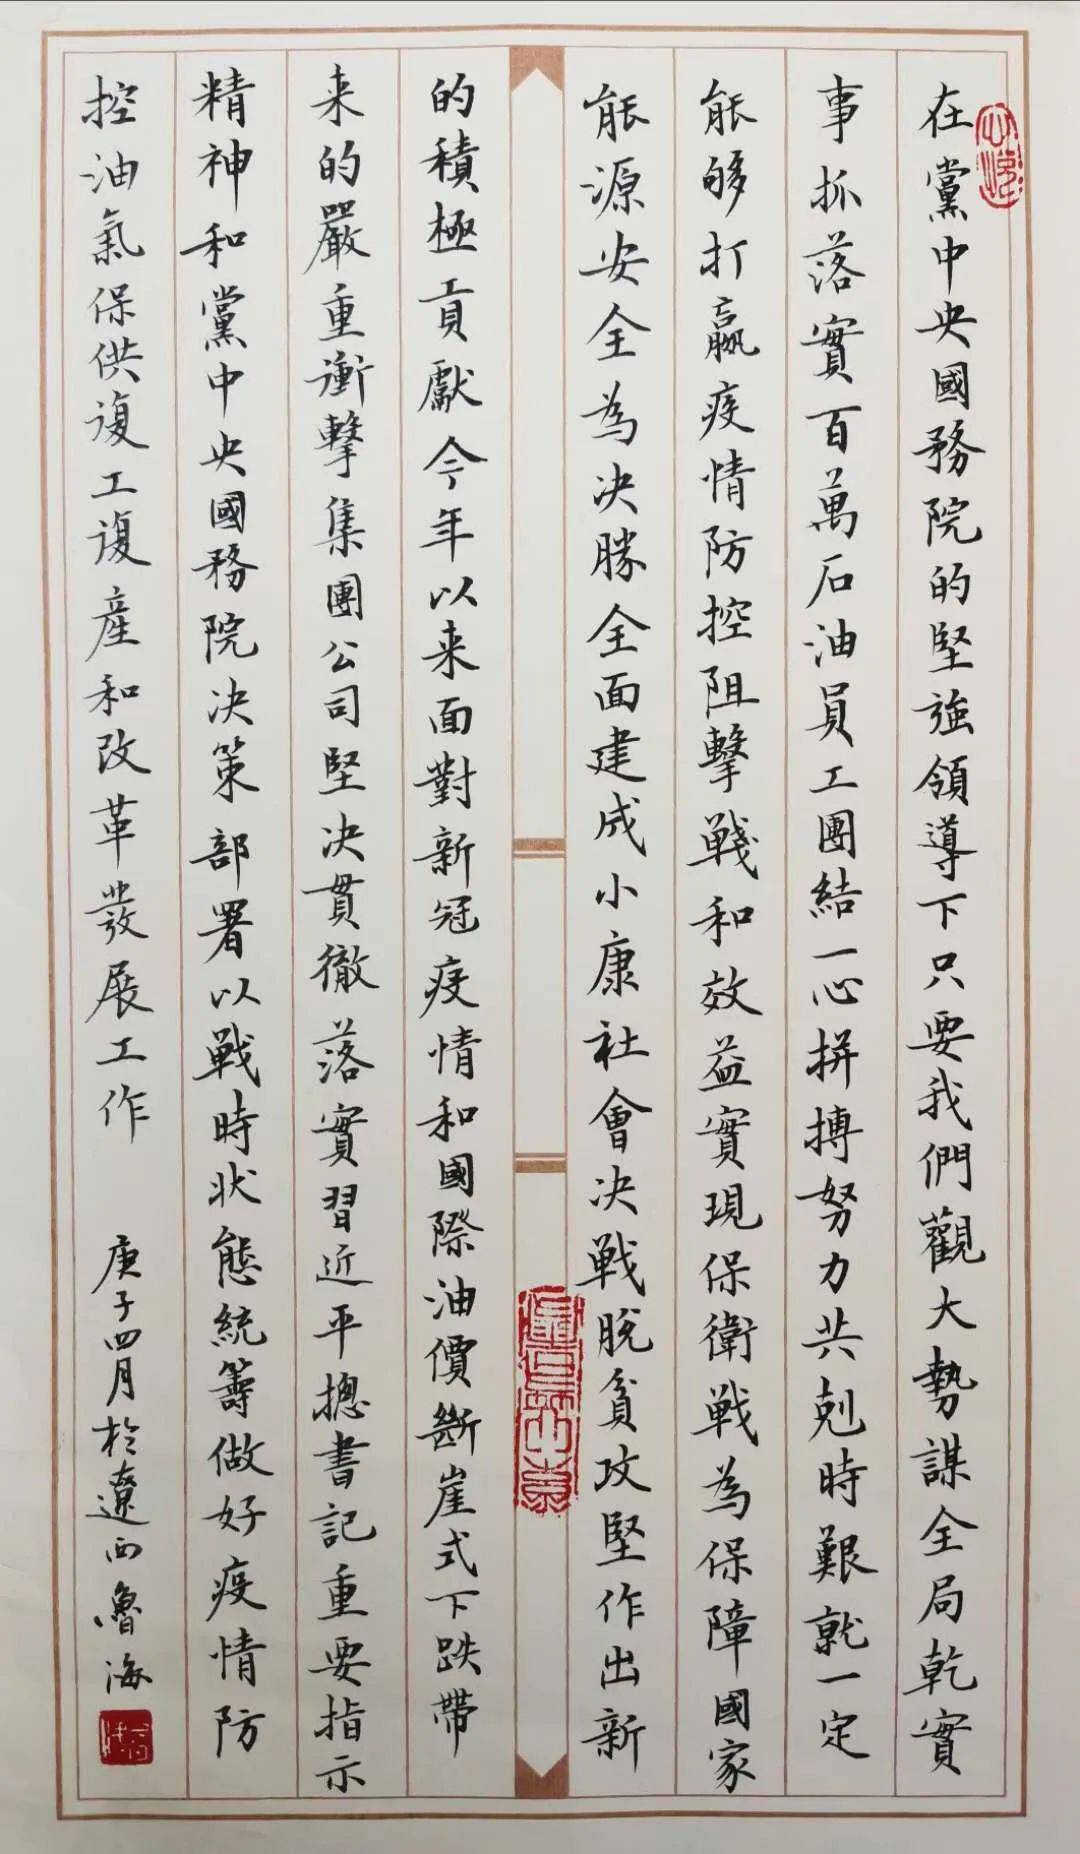 在黨中央國務院的堅強領導下只要我們觀大勢謀全局乾實
事抓落實百萬石油員工團結一心拼搏努力共剋時艱就一定
能够打贏疫情防控阻擊戰和效益實現保衛戰為保障國家
能源安全為决勝全面建成小康社會决戰脫貧攻堅作出新
的積極貢獻今年以来面對新冠疫情和國際油價斷崖式下跌帶
来的嚴重衝擊集團公司堅决貫徹落實習近平總書記重要指示
精神和黨中央國務院决策部署以戰時狀態統籌做好疫情防
控油氣保供復工復產和改革發展工作
庚子四月於遼西魯海